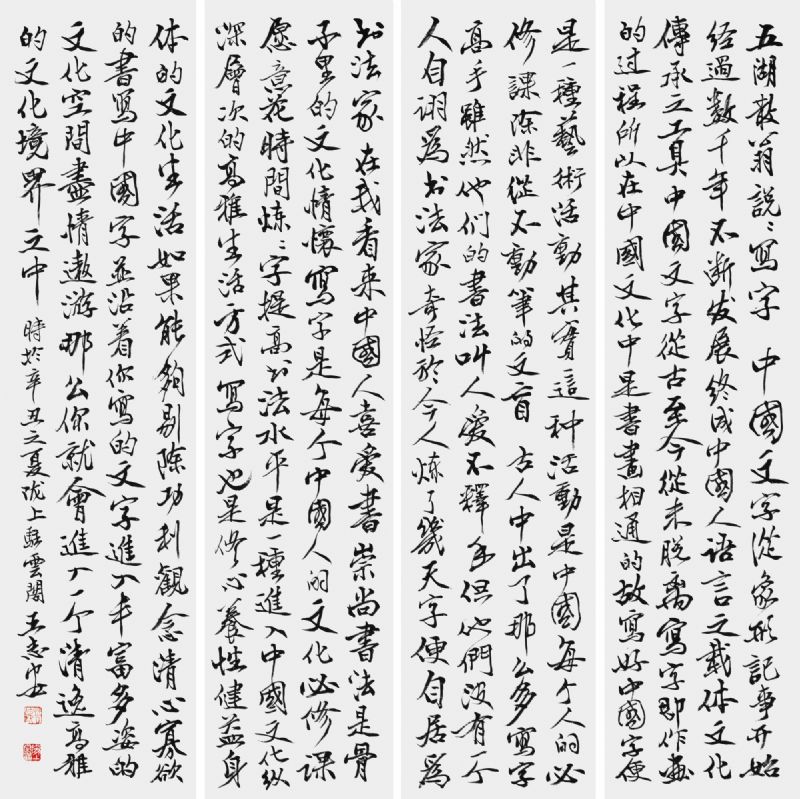 五湖散翁説：寫字 中國文字從象形記事开始
经過數千年不斷发展终成中國人语言之载体文化
傳承之工具中國文字從古至今從未脱离寫字即作画
的过程所以在中國文化中是書畫相通的故寫好中國字便
是一種藝術活動其實這种活動是中國每个人的必
修課除非從不動筆的文盲 古人中出了那么多寫字
高手雖然他们的書法叫人爱不釋手但他們没有一个
人自诩爲书法家奇怪於今人炼了幾天字便自居爲
书法家在我看来中國人喜爱書崇尚書法是骨
子里的文化情懷寫字是每个中國人的文化必修课
愿意花時間炼：字提高书法水平是一種進入中國文化纵
深層次的高雅生活方式寫字也是修心養性健益身
体的文化生活如果能夠剔除功利觀念清心寡欲
的書寫中國字并沿着你寫的文字進入丰富多姿的
文化空間盡情遨游那么你就會進入一个清逸高雅
的文化境界之中 時於辛丑之夏陇上 雲閣王志安